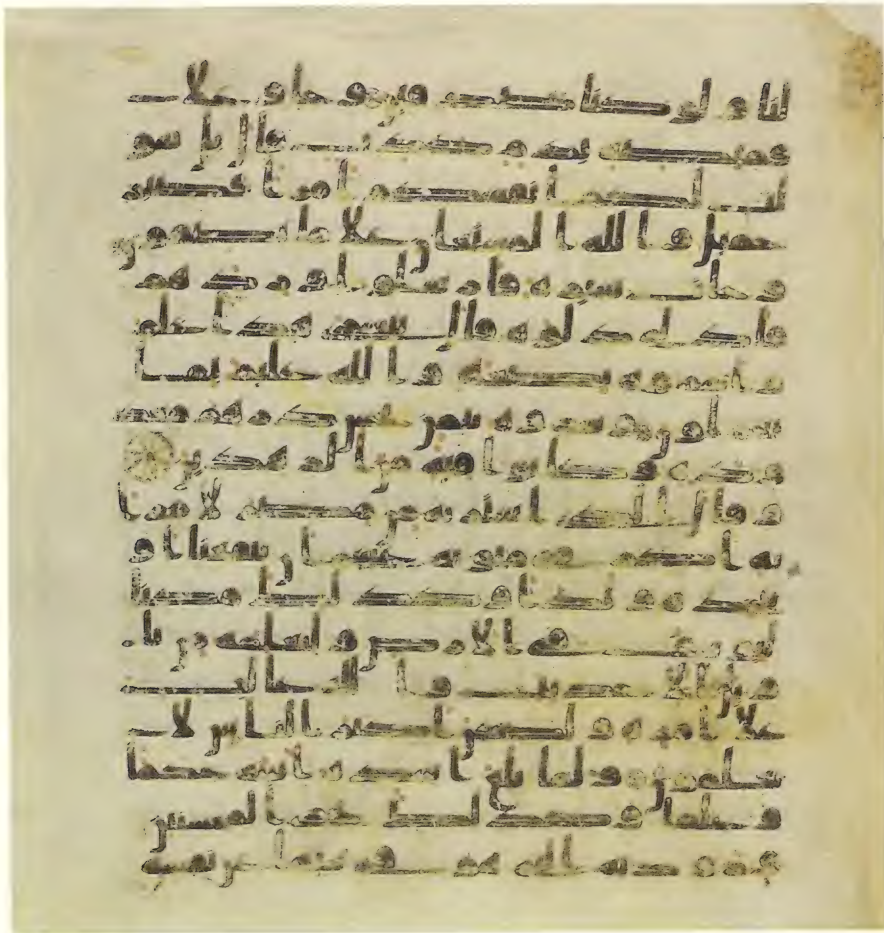 لنا ولو كنا صدقين وجاو علا
قميصه بدم كذب قال بل سو
لت لكم انفسكم امرا فصبر
جميل والله المستعان علا ما تصفون
وجات سيره فارسلوا واردهم
فادلى دلوه قال يبشرى هذا غلم
واسروه بضعه والله عليم بما
يعملون وشروه بثمن بخس درهم معد
وده وكانوا فيه من الزهدين
وقال الذى اشتريه من مصر لامرا
ته اكرمى مثويه عسى ان ينفعنا او
نتخذه ولدا وكذلك مكنا
ليوسف فى الارض ولنعلمه من تا
ويل الاحديث والله غالب
علا امره ولكن اكثر الناس لا
يعلمون ولما بلغ اشده اتينه حكما
وعلما وكذلك نجزى المحسنين
ورودته التى هو فى بيتها عن نفسه